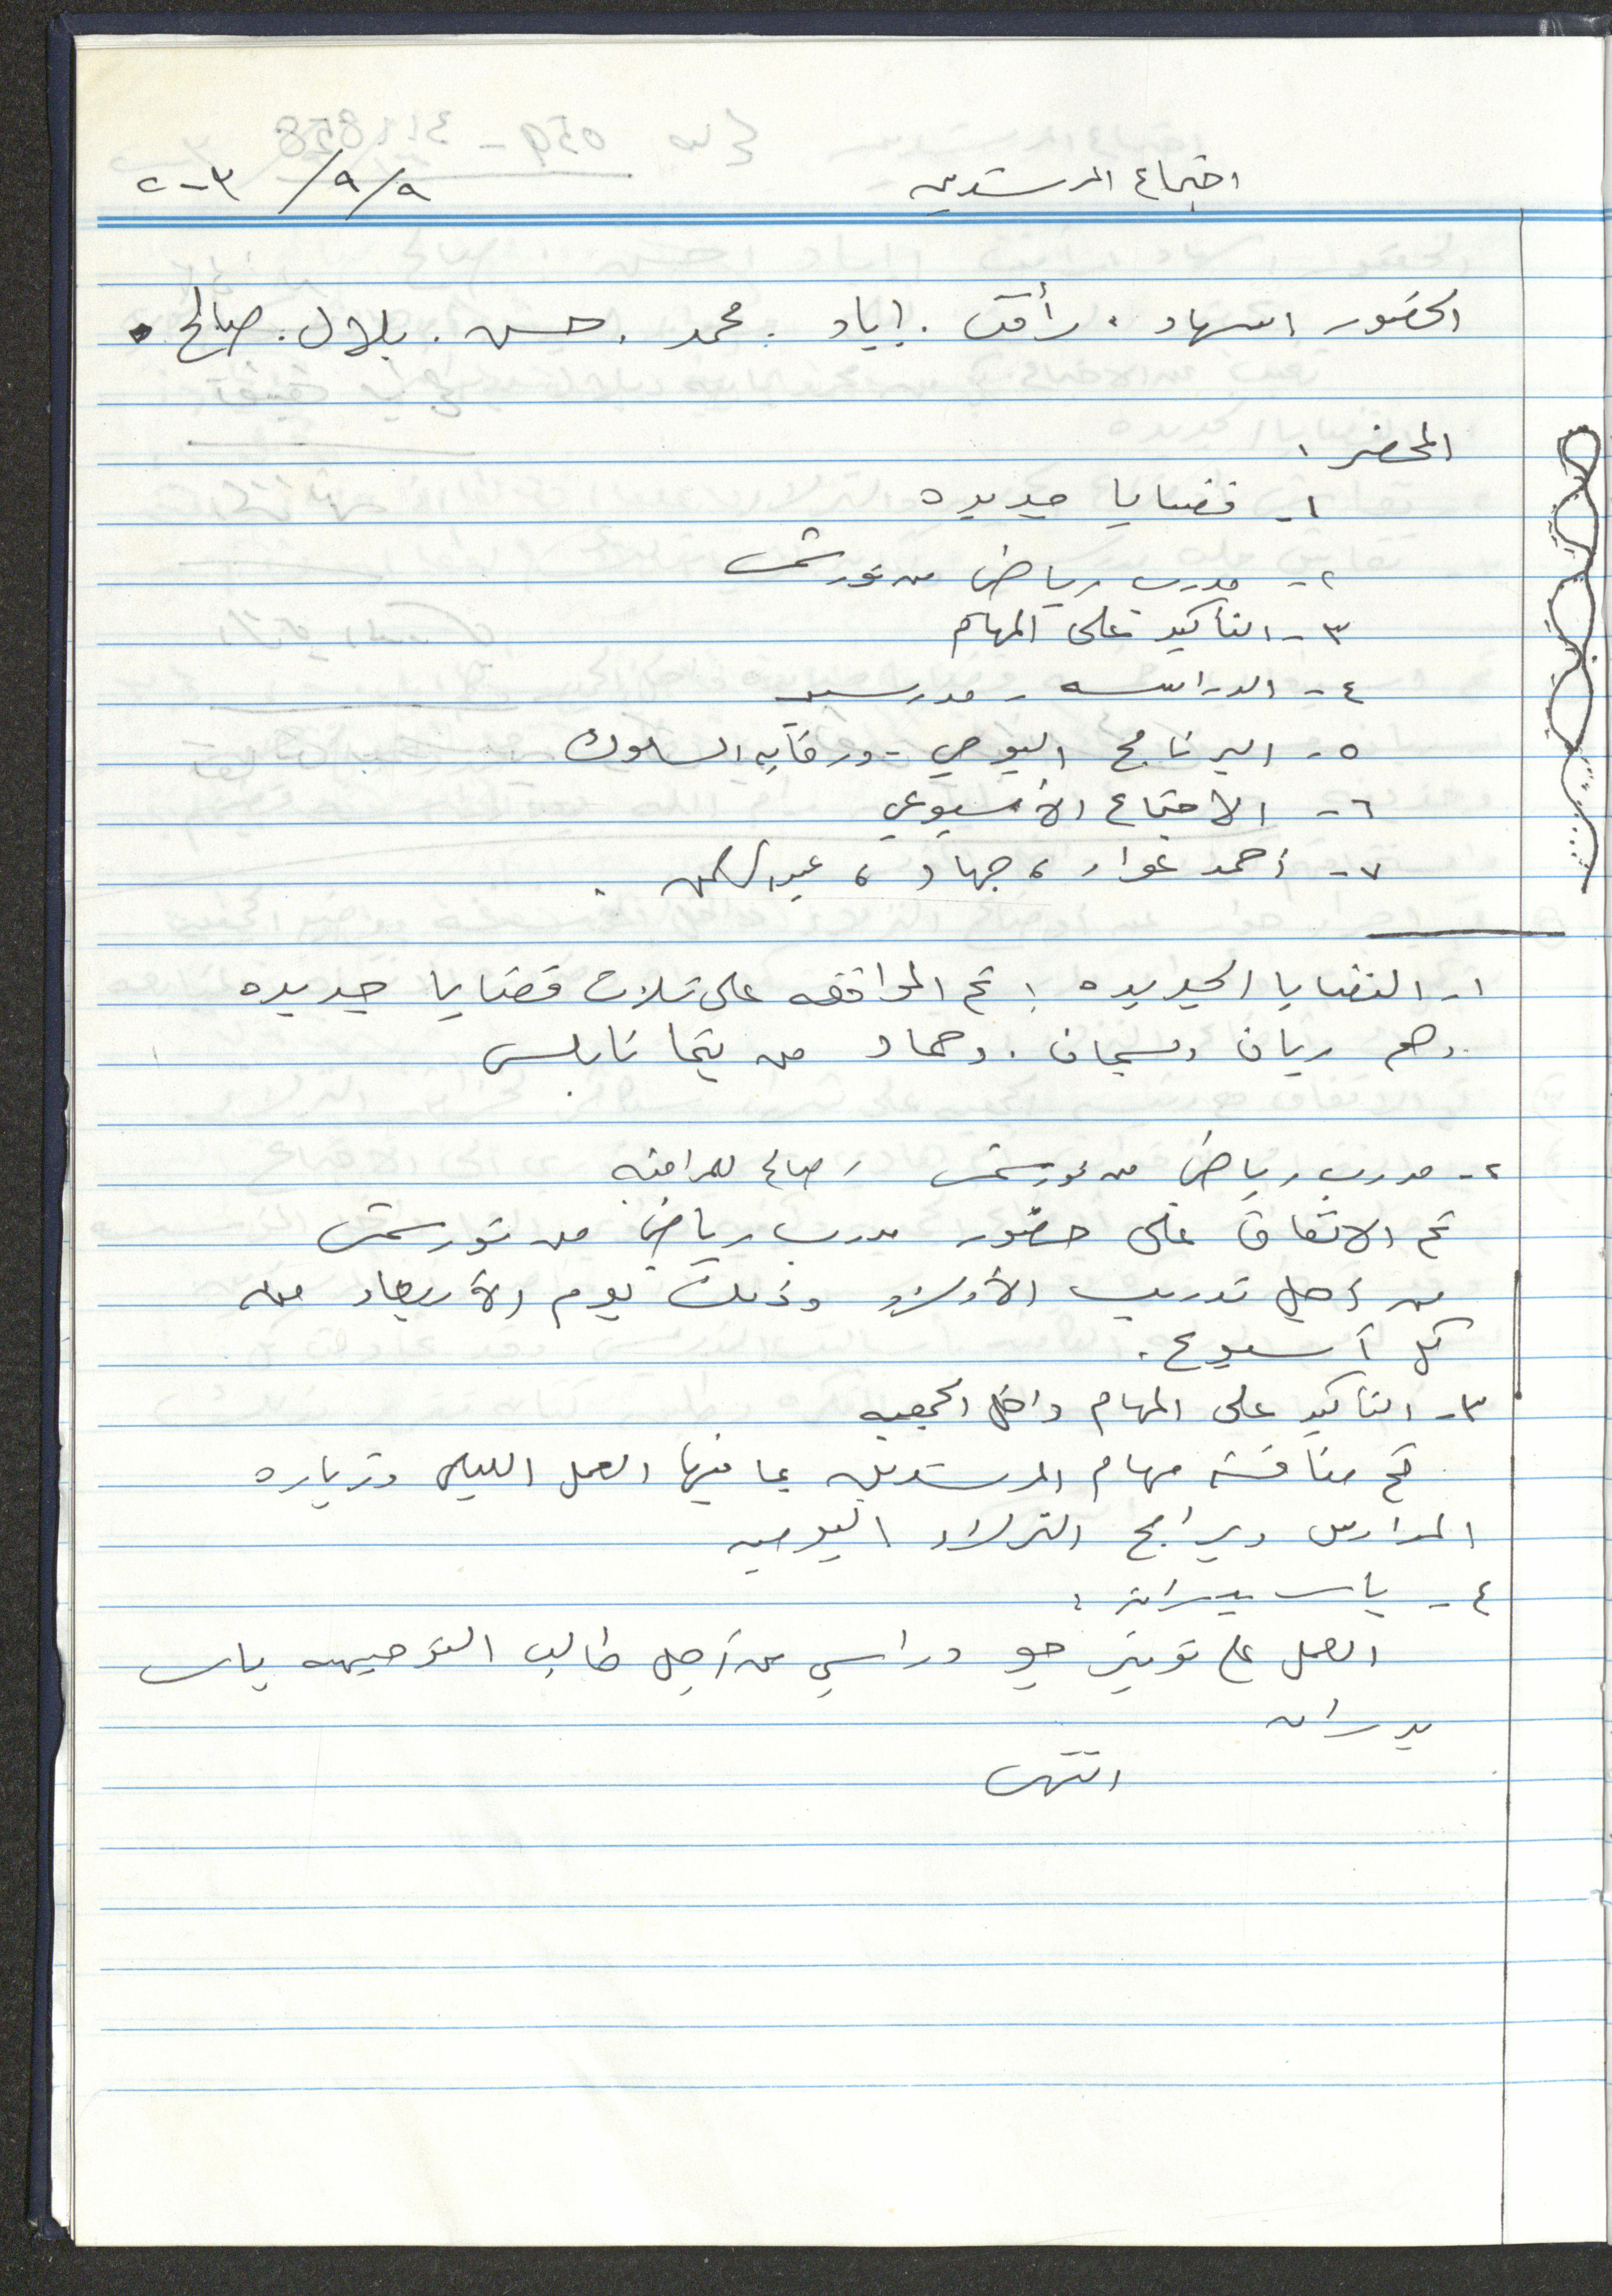 اجتماع المرشدين ٩/٩/٢٠٠٣
الحضور : سهاد . رأفت . اياد . محمد . حسن . بلال . صالح .
المحضر :
١- قضايا جديده
٢- مدرب رياضي من نور شمس
٣- التأكيد على المهام
٤- الدراسه - مدرسين
٥- البرنامج اليومي - ورقابه السلوك
٦- الاجتماع الأسبوعي
٧- أحمد عوار ، جهاد ، عبد الرحمن .
١- القضايا الجديده : تم الموافقه على ثلاث قضايا جديده
وهم ريان وسبحان . وحماد من يتما نابلس
٢- مدرب رياضي من نور شمس / صالح للمراقبه
تم الاتفاق على حضور مدرب رياضي من نور شمس
من أجل تدريب الأولاد وذلك يوم الأربعاء من
كل أسبوع .
٣- التأكيد على المهام داخل الجمعيه
تم مناقشة مهام المرشدين بما فيها العمل الليلي وزياره
المدارس وبرامج النزلاء اليوميه
٤- ياسر بدران :
العمل على توفير جو دراسي من أجل طالب التوجيهي ياسر
بدران
انتهى